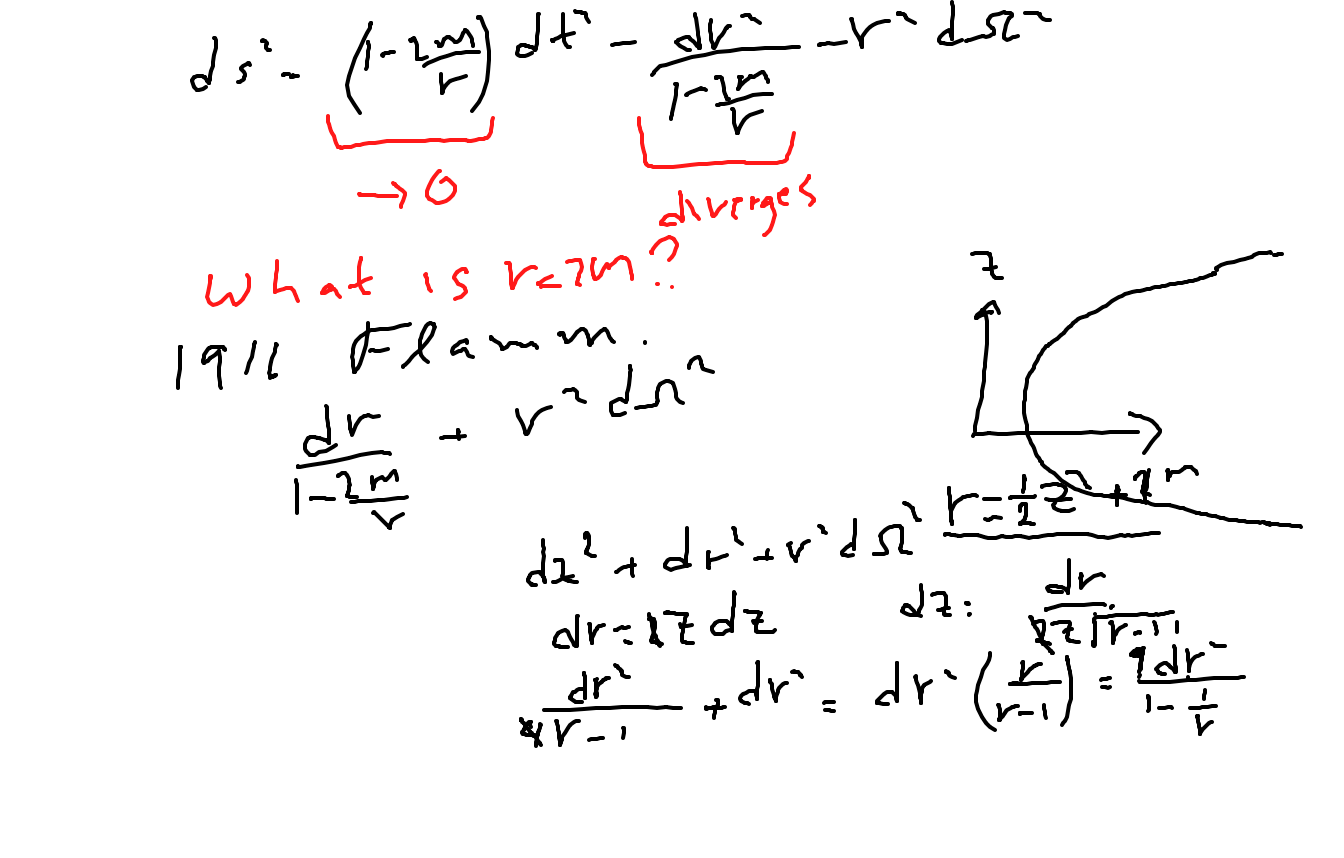 ds² = (1 - 2m/r) dt² - dr²/(1 - 2m/r) - r² dΩ²
→ 0
diverges
What is r<2m?
1916 Flamm.
dr/(1 - 2m/r) + r² dΩ²
z
r = 1/2 z² + 2m
dz² + dr² + r² dΩ²
dr = z dz dz = dr/√(r-1)
dr²/(r-1) + dr² = dr² (r/(r-1)) = dr²/(1 - 1/r)